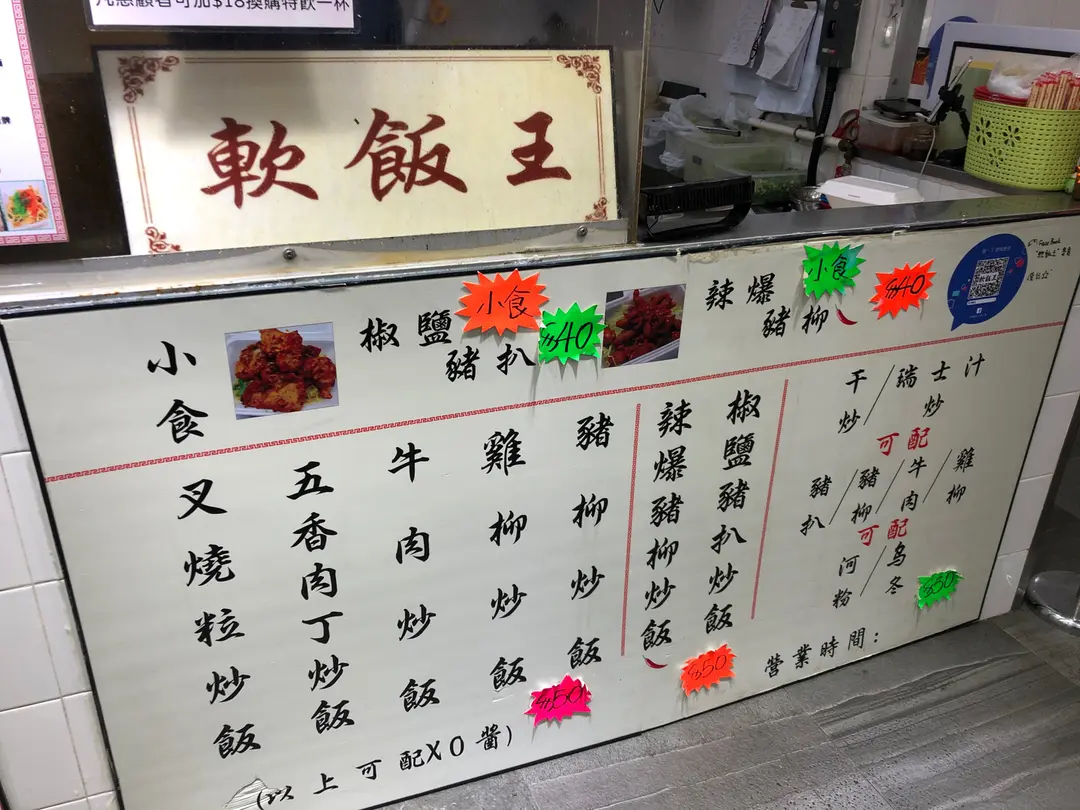 凡惠顧者可加$18換購特飲一杯
軟飯王
小食
椒鹽豬扒
小食
$40
辣爆豬柳
小食
$40
叉燒粒炒飯
五香肉丁炒飯
牛肉炒飯
雞柳炒飯
豬柳炒飯
$50
(以上可配XO醬)
辣爆豬柳炒飯
椒鹽豬扒炒飯
$50
干炒/瑞士汁炒
可配
豬扒/豬柳/牛肉/雞柳
可配
河粉/烏冬
$50
營業時間：